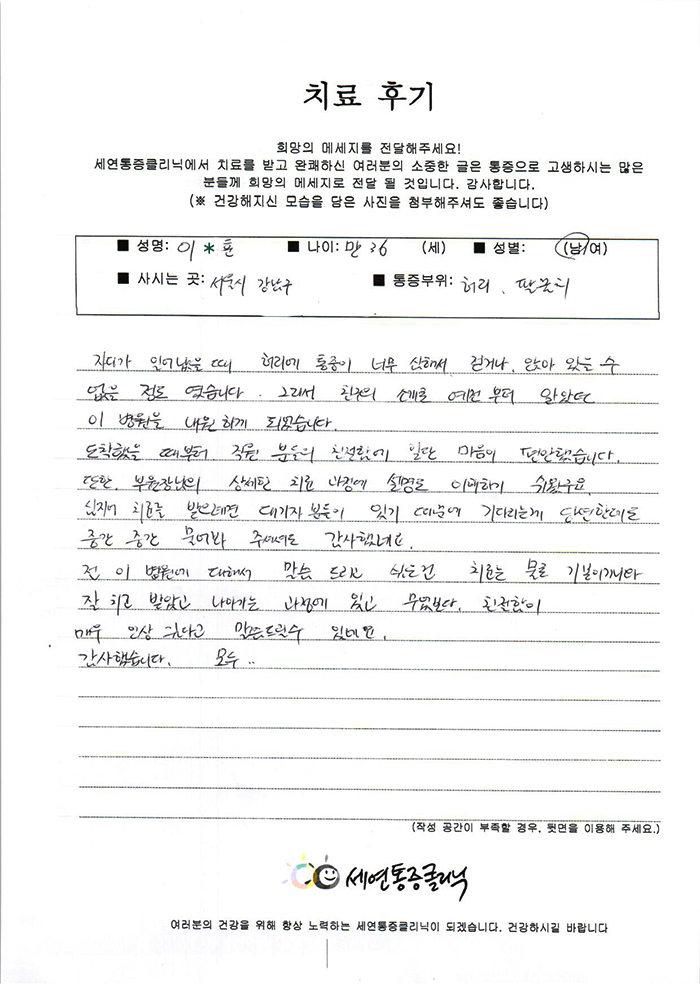 치료 후기
희망의 메세지를 전달해주세요!
세연통증클리닉에서 치료를 받고 완쾌하신 여러분의 소중한 글은 통증으로 고생하시는 많은
분들께 희망의 메세지로 전달 될 것입니다. 감사합니다.
(※ 건강해지신 모습을 담은 사진을 첨부해주셔도 좋습니다)
■ 성명: 이*훈 ■ 나이: 만 36 (세) ■ 성별: (남/여)
■ 사시는 곳: 서울시 강남구 ■ 통증부위: 허리, 팔꿈치
자다가 일어났을 때 허리에 통증이 너무 심해서 걷거나, 앉아 있을 수
없을 정도 였습니다. 그래서 친구의 소개로 예전부터 알았던
이 병원을 내원하게 되었습니다.
도착했을 때부터, 직원 분들의 친절함에 일단 마음이 편안했습니다.
또한, 부원장님의 상세한 치료 과정에 설명도 이해하기 쉬웠구요.
심지어 치료를 받으려면 대기자 분들이 있기 때문에 기다리는게 당연한데도
중간 중간 물어봐 주셔서도 감사했네요.
전 이 병원에 대해서 말씀 드리고 싶은건 치료는 물론 기본이거니와
잘 치료 받았고 나아가는 과정에 있고 무엇보다, 친절함이
매우 인상 깊다고 말씀드릴수 있네요.
감사했습니다. 모두..
(작성 공간이 부족할 경우, 뒷면을 이용해 주세요.)
세연통증클리닉
여러분의 건강을 위해 항상 노력하는 세연통증클리닉이 되겠습니다. 건강하시길 바랍니다